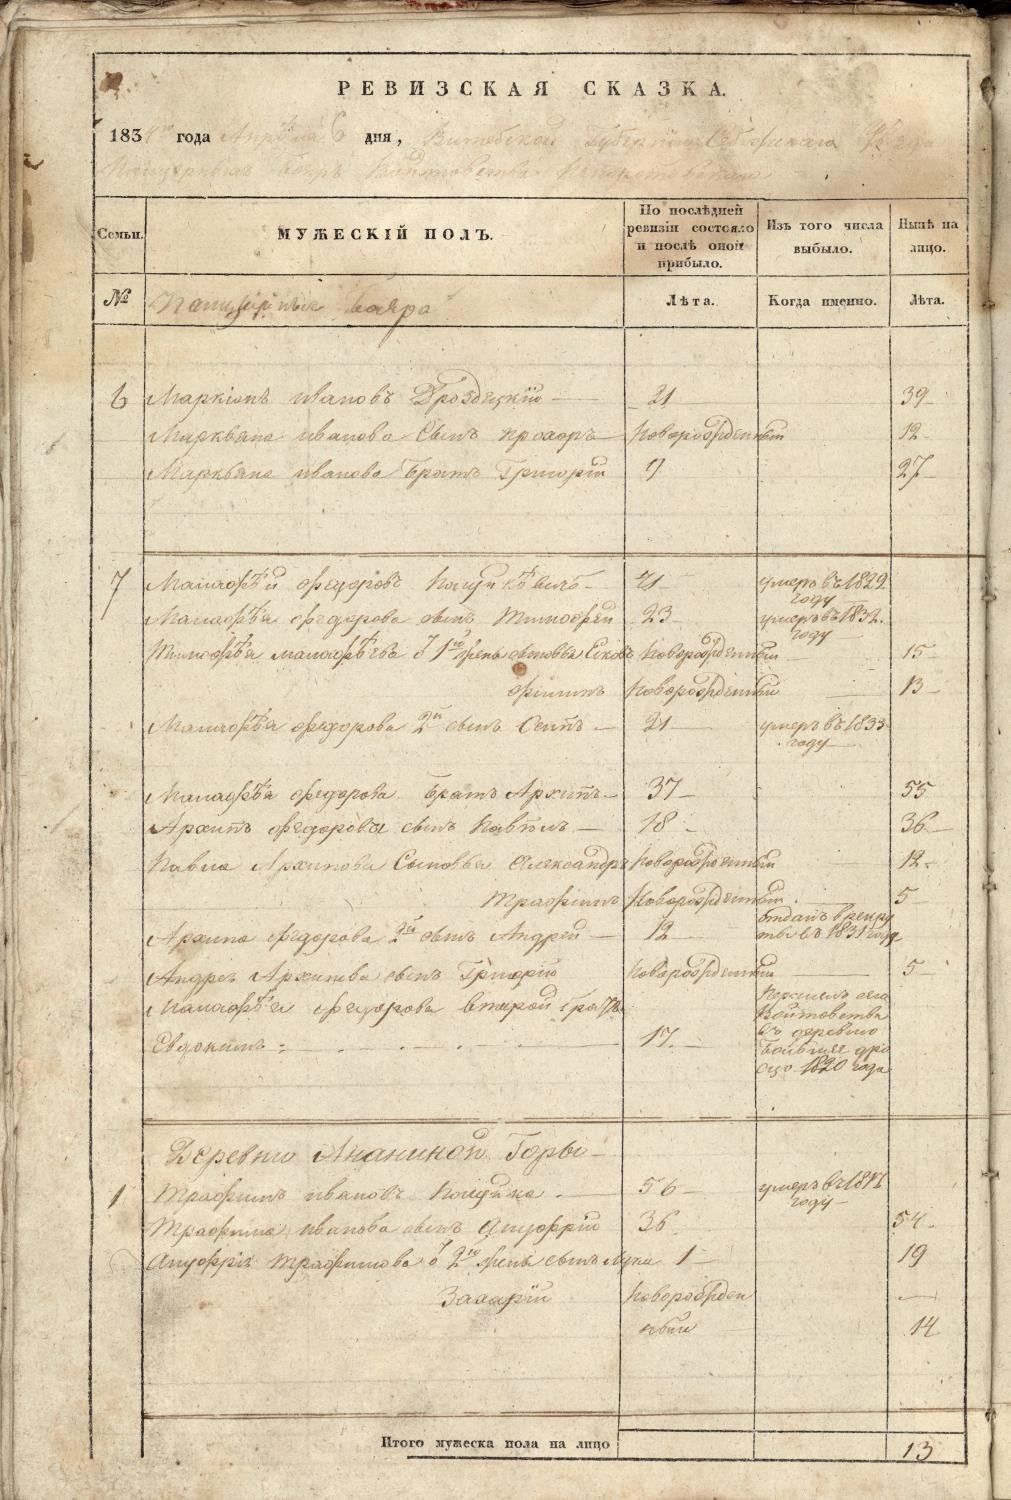 РЕВИЗСКАЯ СКАЗКА.
1834 года Апрѣля 6 дня, Витебской Губернии Себежскаго
Войтовства
Семьи. МУЖЕСКІЙ ПОЛЪ. По послѣдней ревизіи состояло и послѣ оной прибыло. Изъ того числа выбыло. Нынѣ на лицо.
№ Панцырные бояра Лѣта. Когда именно. Лѣта.
6 Маркіянъ Ивановъ Дроздецкій 21 39
Маркьяна Иванова сынъ Прохоръ новорожденный 12
Маркьяна Иванова братъ Григорій 9 27
7 Малафѣй Федоровъ 71 умеръ въ 1829. году
Малафѣя Федорова сынъ Тимофей 23 умеръ въ 1832. году
Тимофѣя Малафѣева 1й жены сыновья новорожденный 15
новорожденный 13
Малафѣя Федорова 2й сынъ Осипъ 21 умеръ въ 1833 году
Малафѣя Федорова братъ Архипъ 37 55
Архипа Федорова сынъ Павелъ 18 36
Павла Архипова сыновья Александръ новорожденный 12
Трафимъ новорожденный 5
Архипа Федорова 2й сынъ Андрей 12 отданъ в рекруты въ 1831 году
Андрея Архипова сынъ Григорій новорожденный 5
Малафѣя Федорова второй братъ
Евдокимъ 17 Войтовства въ деревню 1820 года
Деревни Ананиной Горы
1 Трафимъ Ивановъ 56 умеръ въ году
Трафима Иванова сынъ Ануфрій 36 54
Ануфрія Трафимова 2й жены сынъ Лука 1 19
Захарій новорожден
ный 14
Итого мужеска пола на лицо 13